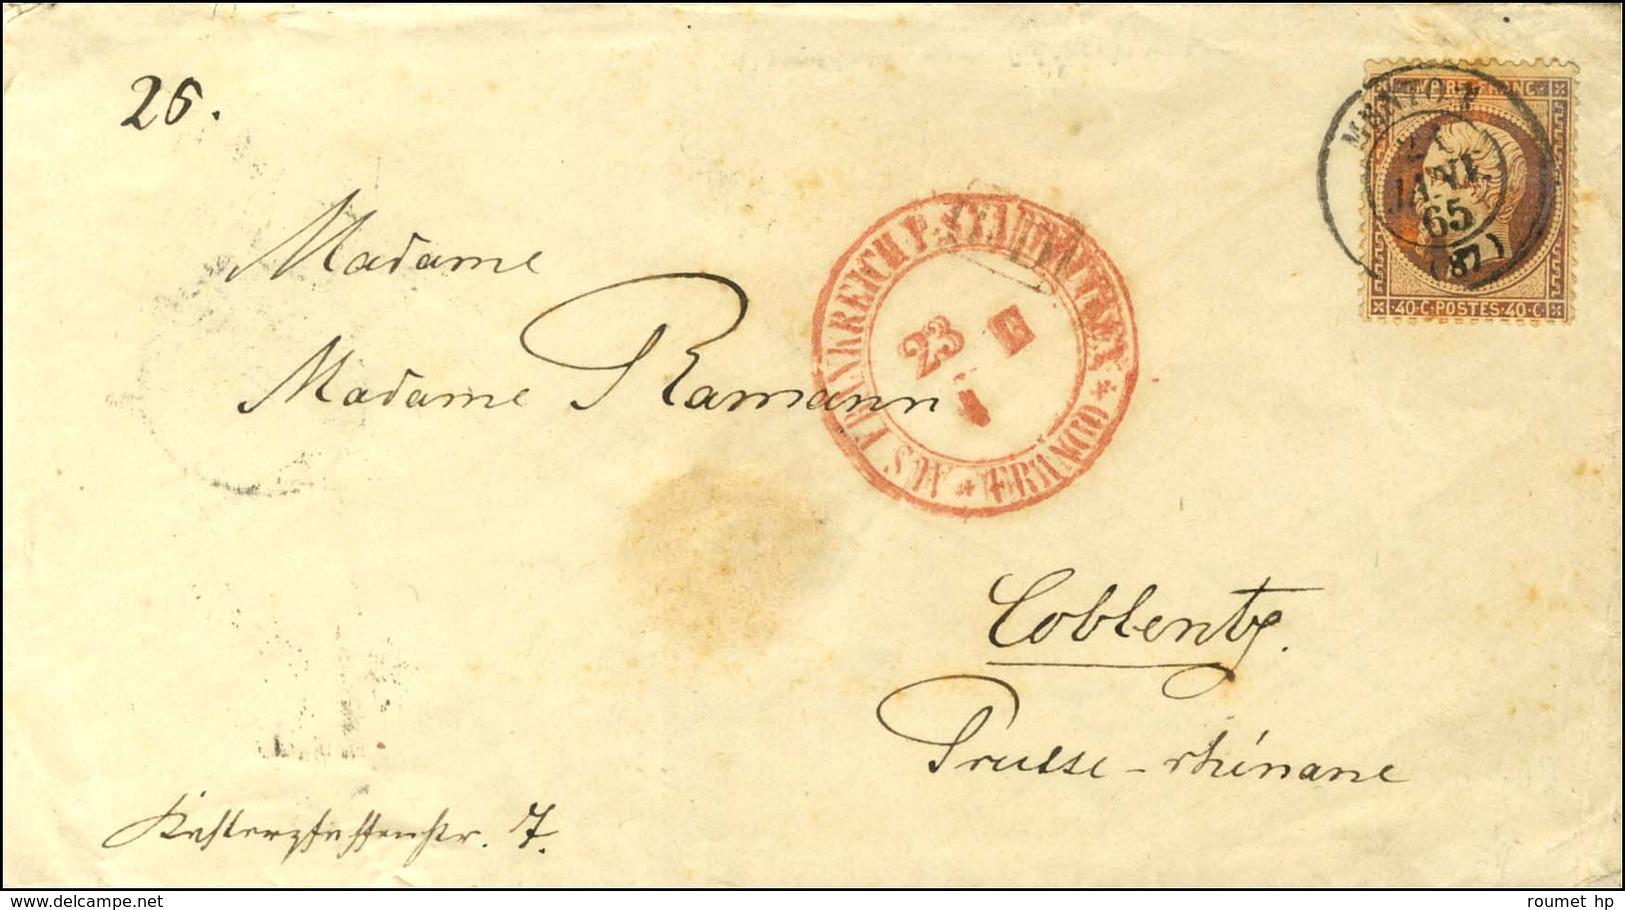 26.
MENTON
21
JANV.
65
(87)
EMPIRE FRANC
40·C·POSTES·40·C
AUS FRANKREICH P.
FRANCO
23
1
Madame
Madame Ramann
Coblentz.
Prusse-rhénane
7.
roumet hp